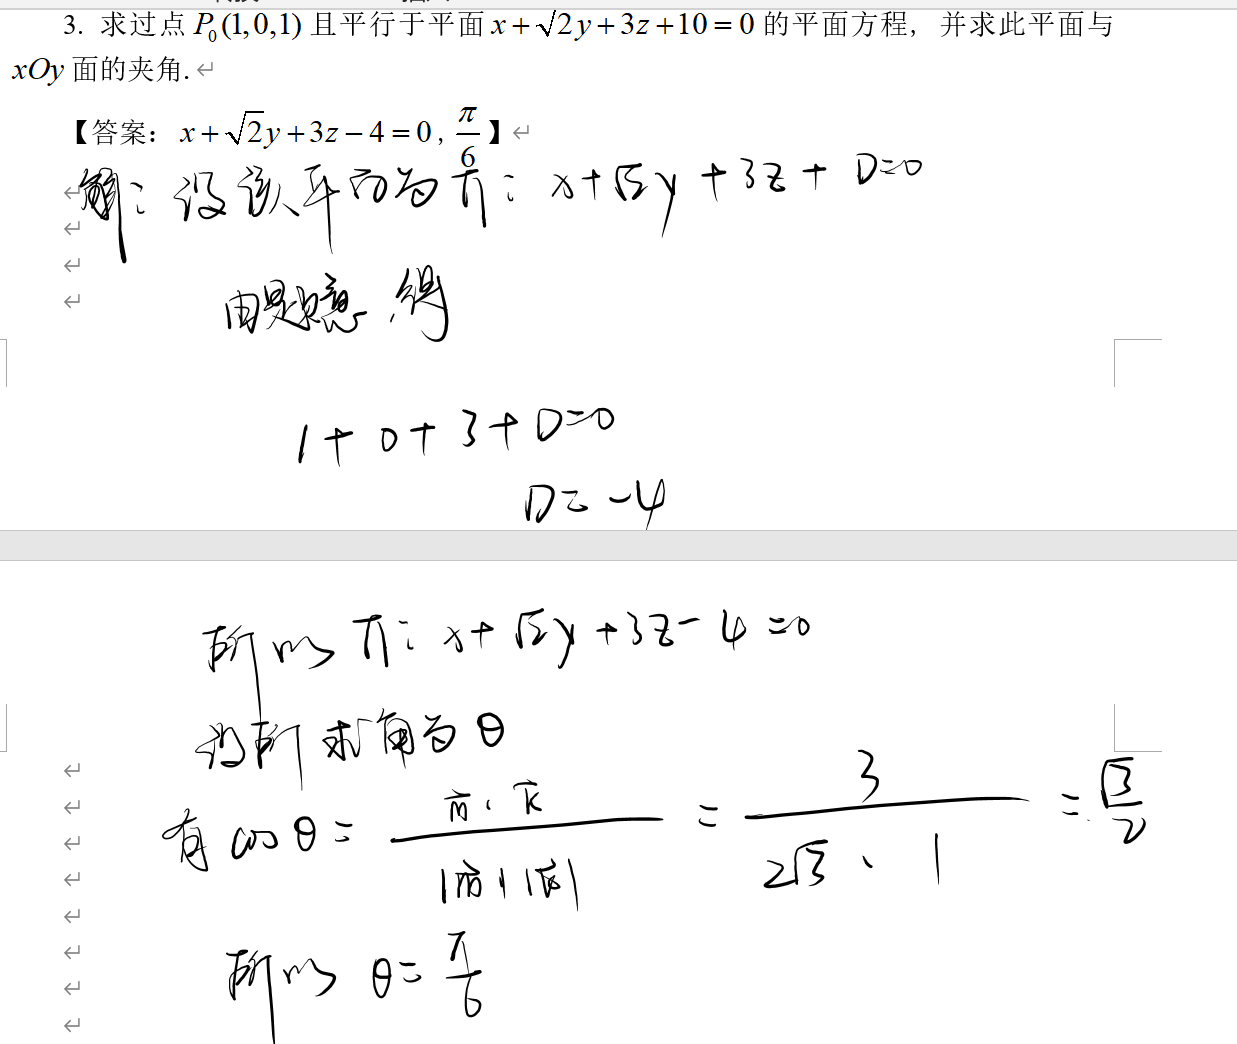 3. 求过点 P₀(1,0,1) 且平行于平面 x+√2y+3z+10=0 的平面方程，并求此平面与
xOy 面的夹角.
【答案：x+√2y+3z−4=0, π/6】
解：设该平面为 π：x+√2y+3z+D=0
由题意，得
1+0+3+D=0
D=-4
所以 π：x+√2y+3z-4=0
设所求角为 θ
有 cosθ = n⃗·k⃗ / |n⃗|·|k⃗| = 3 / 2√3·1 = √3/2
所以 θ=π/6